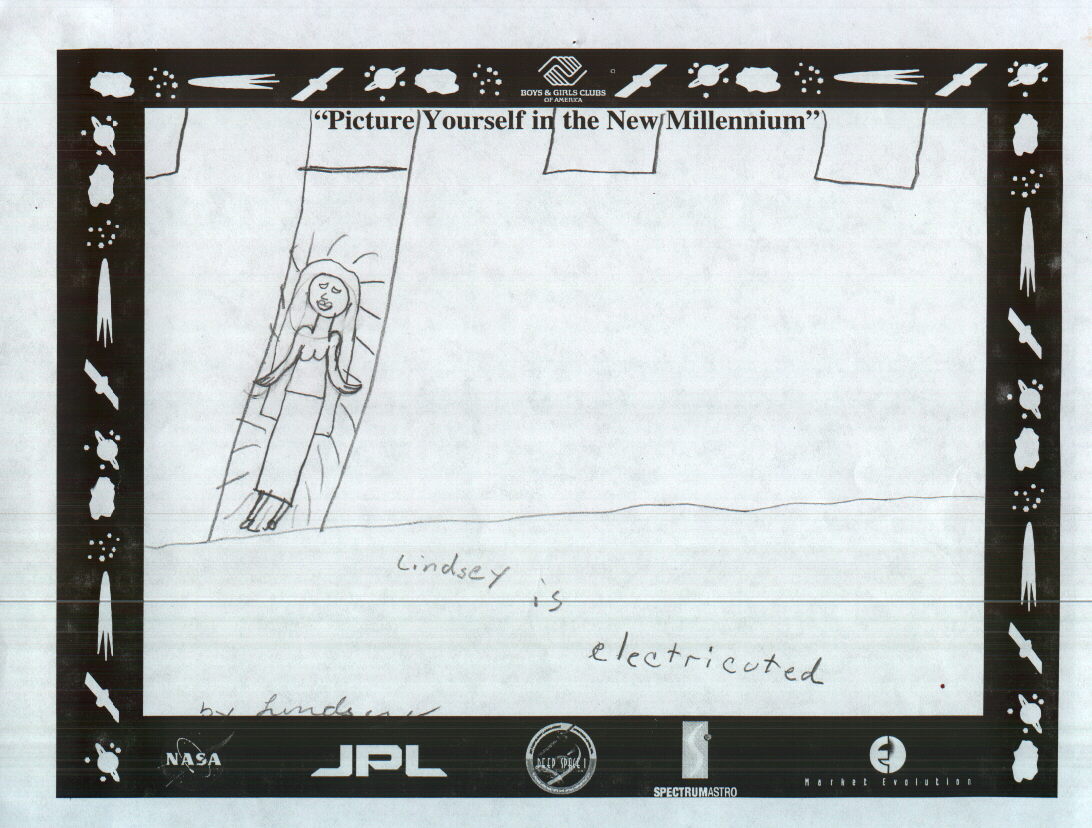 BOYS & GIRLS CLUBS
OF AMERICA
“Picture Yourself in the New Millennium”
Lindsey
is
electricuted
by
NASA
JPL
DEEP SPACE 1
SPECTRUMASTRO
Market Evolution